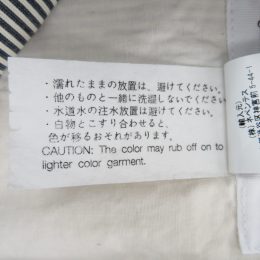 ・濡れたままの放置は、避けてください。
・他のものと一緒に洗濯しないでください。
・水道水の注水放置は避けてください。
・白物とこすり合わせると、
色が移るおそれがあります。
CAUTION: The color may rub off on to
lighter color garment.
(輸入元)
(株)ネペンテス